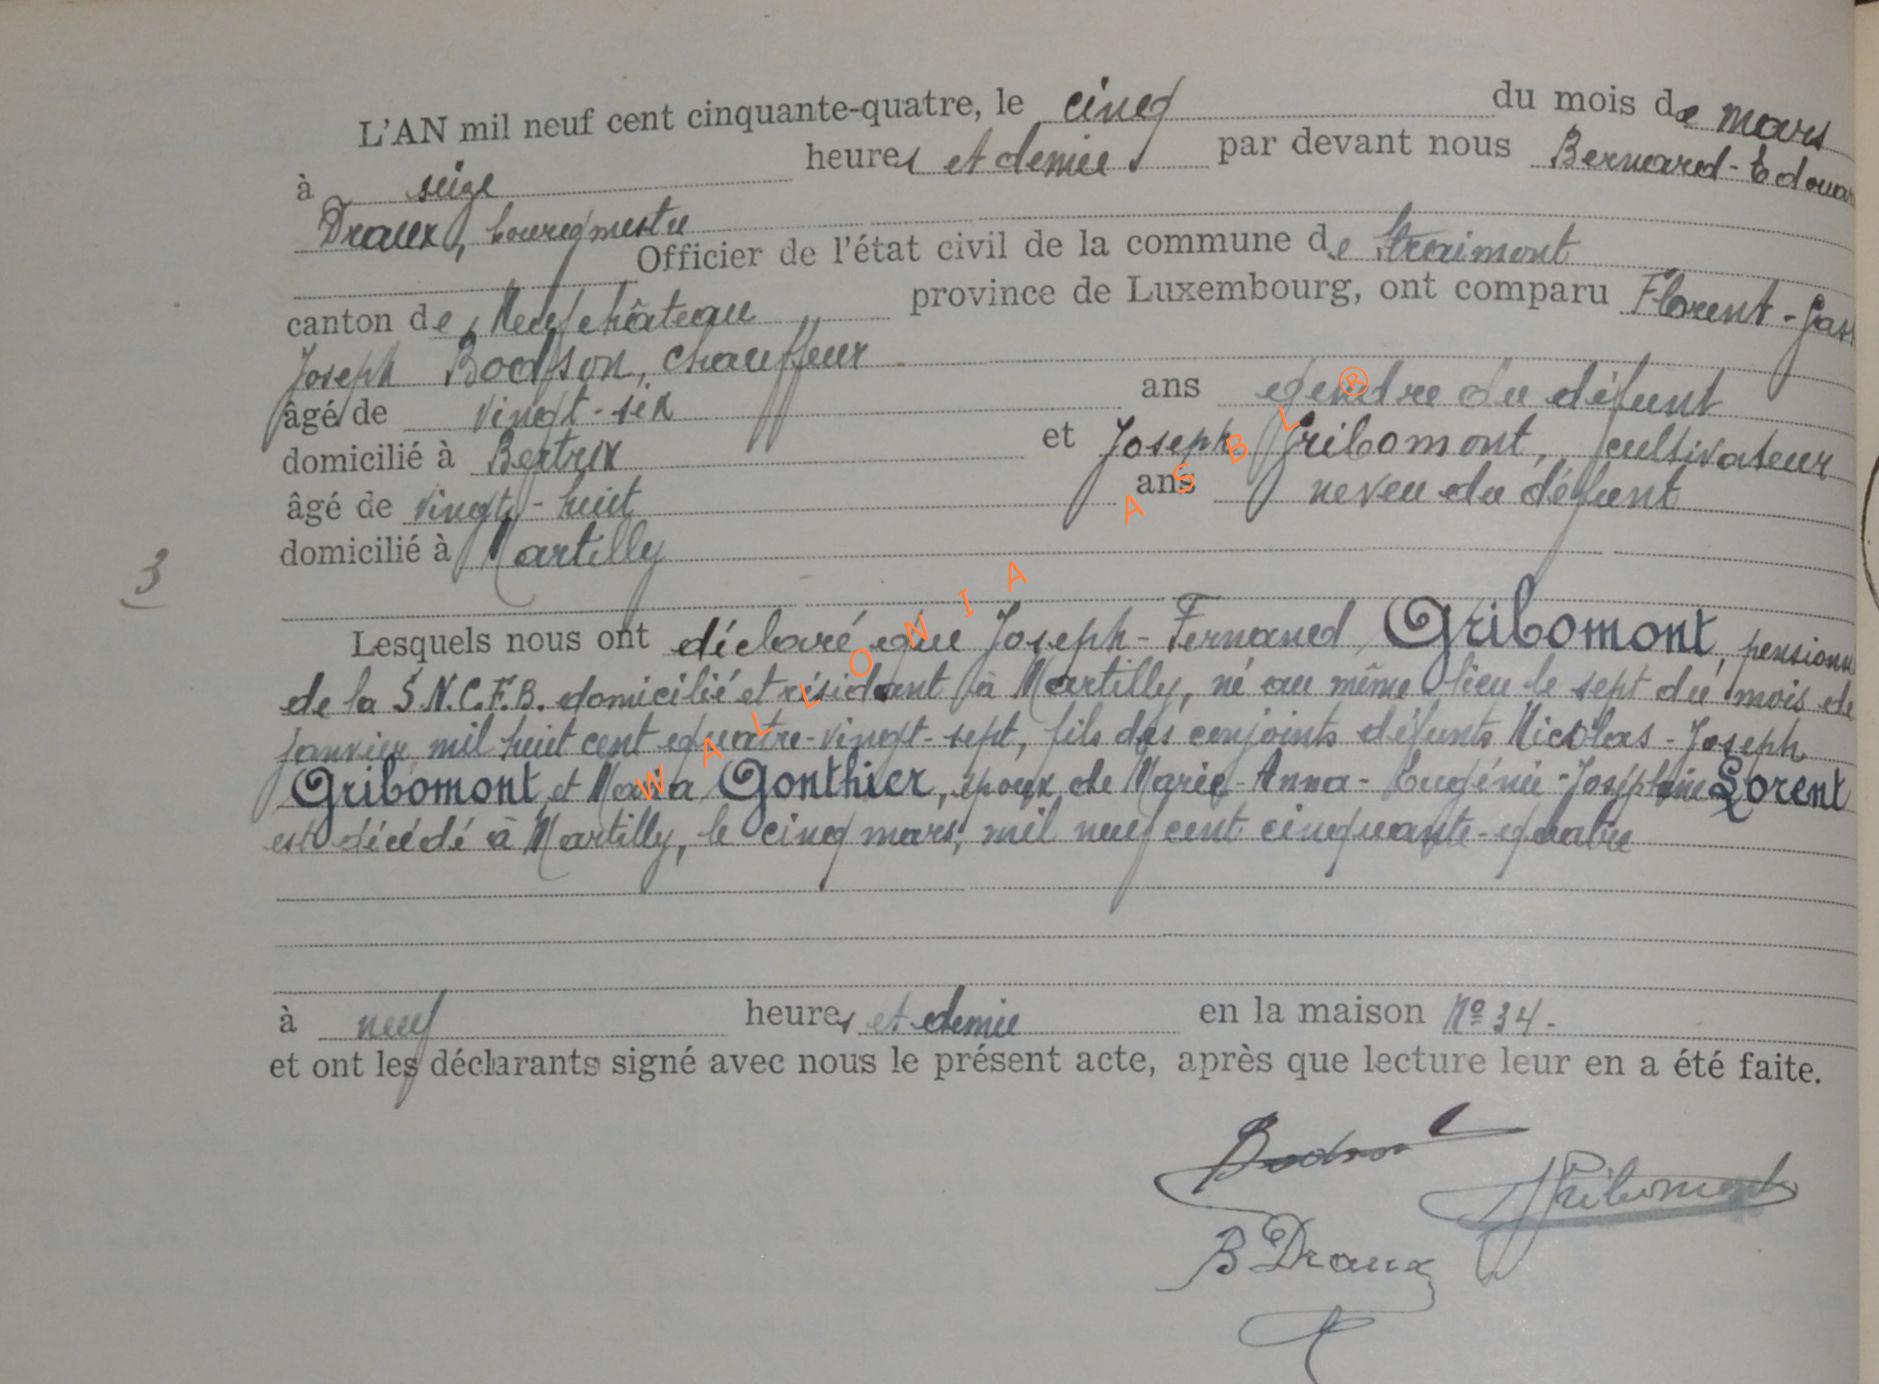 L'AN mil neuf cent cinquante-quatre, le cinq du mois de mars
à seize heures et demie par devant nous Bernard-Edouar
Draux, bourgmestre
Officier de l'état civil de la commune de Straimont
canton de Neufchâteau province de Luxembourg, ont comparu Florent-Gas
Joseph Bodson, chauffeur
âgé de vingt-six ans gendre du défunt
domicilié à Bertrix et Joseph Gribomont, cultivateur
âgé de vingt-huit ans neveu du défunt
domicilié à Martilly
3
Lesquels nous ont déclaré que Joseph-Fernand Gribomont, pensionn
de la S.N.C.F.B. domicilié et résidant à Martilly, né au même lieu le sept du mois de
janvier mil huit cent quatre-vingt-sept, fils des conjoints défunts Nicolas-Joseph
Gribomont et Maria Gonthier, époux de Marie-Anna-Eugénie-Joséphine Lorent
est décédé à Martilly, le cinq mars, mil neuf cent cinquante-quatre
à neuf heures et demie en la maison Nº 34.
et ont les déclarants signé avec nous le présent acte, après que lecture leur en a été faite.
Bodson
Gribomont
B Draux
WALLONIA ASBL ®